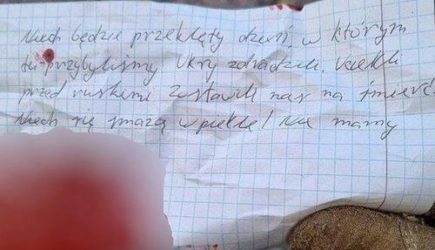 Niech będzie przeklęty dzień, w którym
tu przybyliśmy Ukry zdradzili. Uciekli
przed ruskimi zostawili nas na śmierć.
Niech się smażą w piekle! Nie mamy